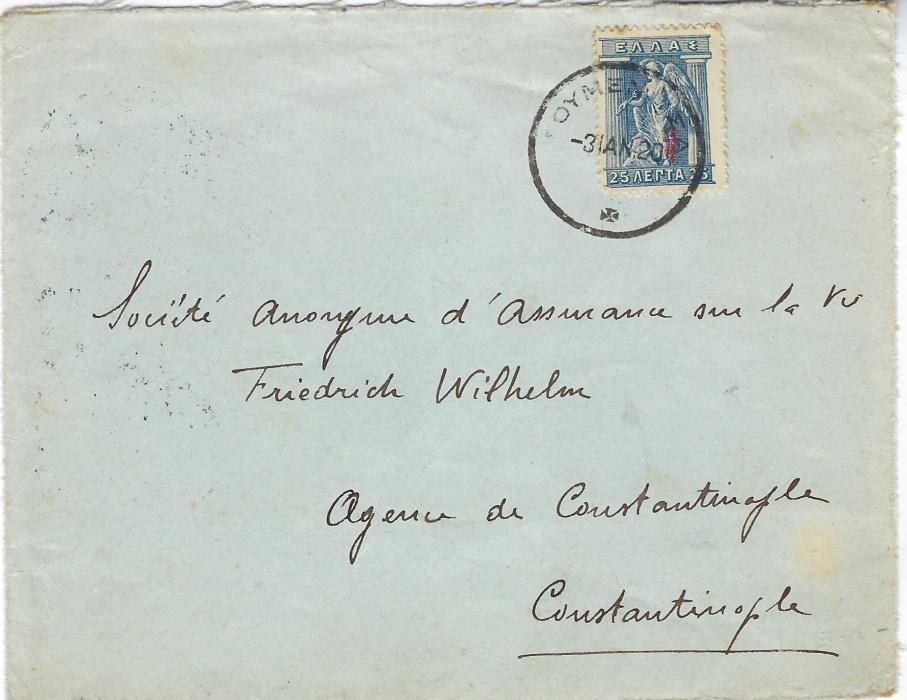 ΕΛΛΑΣ
-3 ΙΑΝ. 20
25 ΛΕΠΤΑ 25
Société Anonyme d'Assurance sur la Vie
Friedrich Wilhelm
Agence de Constantinople
Constantinople